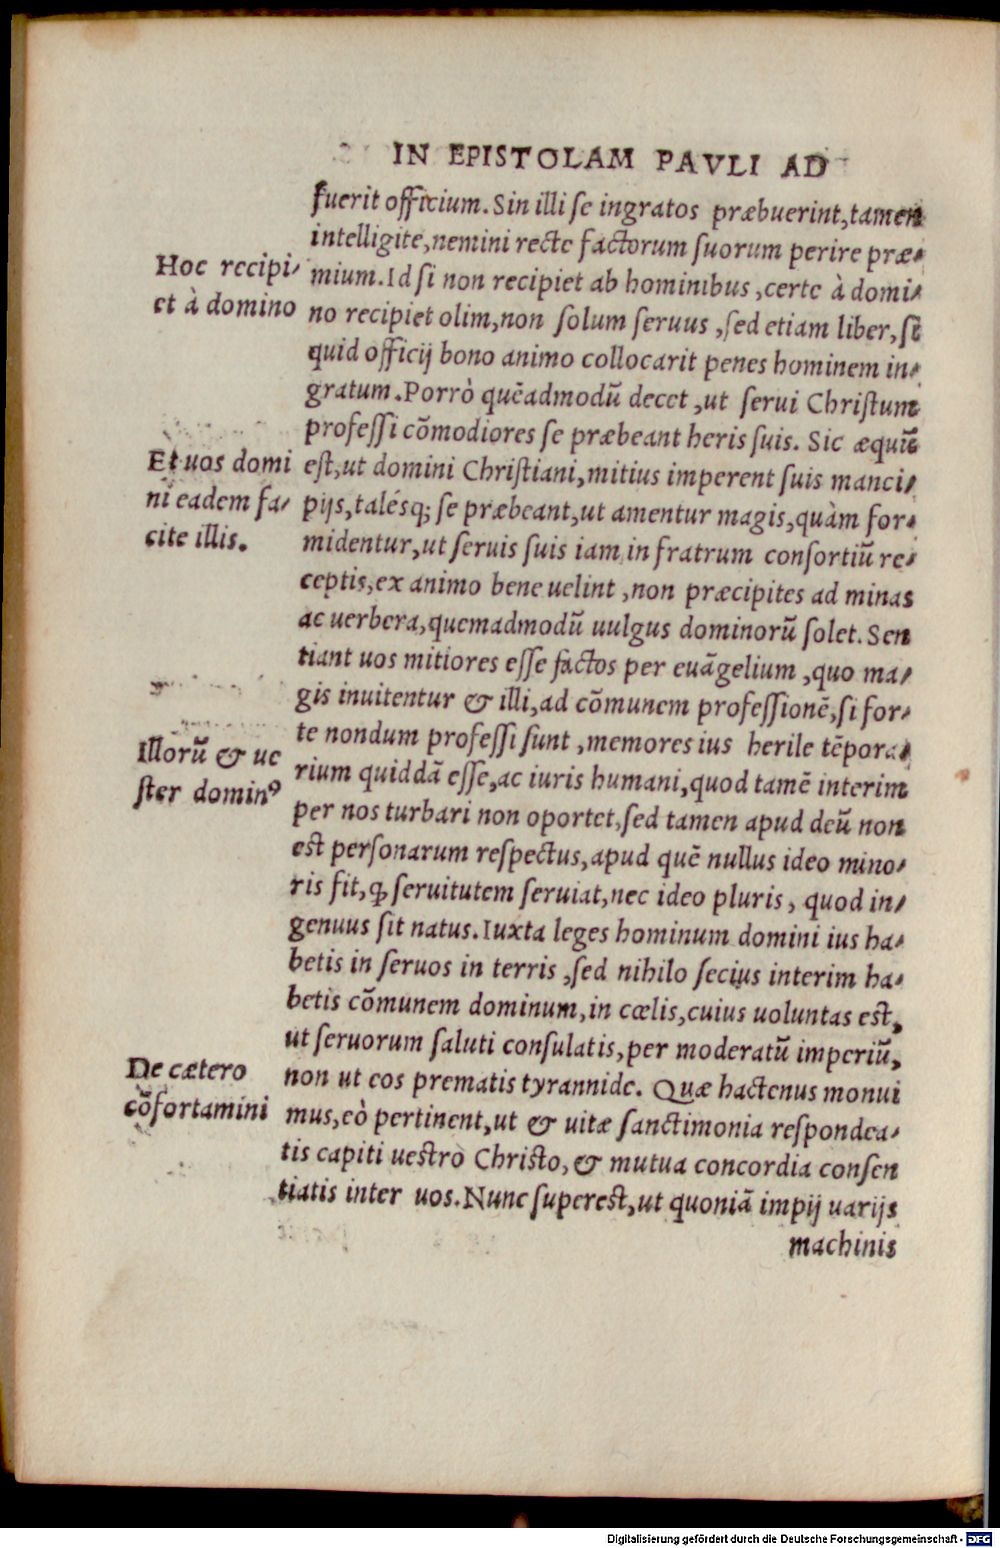 IN EPISTOLAM PAVLI AD
fuerit officium. Sin illi se ingratos præbuerint, tamen
intelligite, nemini recte factorum suorum perire præ-
Hoc recipi-
et à domino
mium. Id si non recipiet ab hominibus, certe à domi-
no recipiet olim, non solum seruus, sed etiam liber, si
quid officij bono animo collocarit penes hominem in-
gratum. Porrò quẽadmodũ decet, ut serui Christum
professi cõmodiores se præbeant heris suis. Sic æquũ
Et uos domi
ni eadem fa-
cite illis.
est, ut domini Christiani, mitius imperent suis manci-
pijs, talésq; se præbeant, ut amentur magis, quàm for-
midentur, ut seruis suis iam in fratrum consortiũ re-
ceptis, ex animo bene uelint, non præcipites ad minas
ac uerbera, quemadmodũ uulgus dominorũ solet. Sen
tiant uos mitiores esse factos per euãgelium, quo ma-
gis inuitentur & illi, ad cõmunem professionẽ, si for-
te nondum professi sunt, memores ius herile tẽpora-
Illorũ & ue
ster dominꝰ
rium quiddã esse, ac iuris humani, quod tamẽ interim
per nos turbari non oportet, sed tamen apud deũ non
est personarum respectus, apud quẽ nullus ideo mino-
ris fit, ꝙ seruitutem seruiat, nec ideo pluris, quod in-
genuus sit natus. Iuxta leges hominum domini ius ha-
betis in seruos in terris, sed nihilo secius interim ha-
betis cõmunem dominum, in cœlis, cuius uoluntas est,
ut seruorum saluti consulatis, per moderatũ imperiũ,
De cætero
cõfortamini
non ut eos prematis tyrannide. Quæ hactenus monui
mus, eò pertinent, ut & uitæ sanctimonia respondea-
tis capiti uestro Christo, & mutua concordia consen
tiatis inter uos. Nunc superest, ut quoniã impij uarijs
machinis
Digitalisierung gefördert durch die Deutsche Forschungsgemeinschaft - DFG